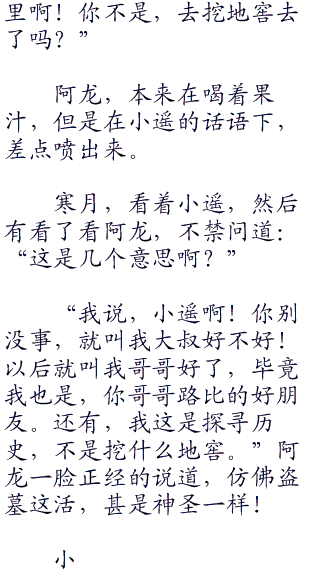 里啊！你不是，去挖地窖去
了吗？”
阿龙，本来在喝着果
汁，但是在小遥的话语下，
差点喷出来。
寒月，看着小遥，然后
有看了看阿龙，不禁问道：
“这是几个意思啊？”
“我说，小遥啊！你别
没事，就叫我大叔好不好！
以后就叫我哥哥好了，毕竟
我也是，你哥哥路比的好朋
友。还有，我这是探寻历
史，不是挖什么地窖。”阿
龙一脸正经的说道，仿佛盗
墓这活，甚是神圣一样！
小